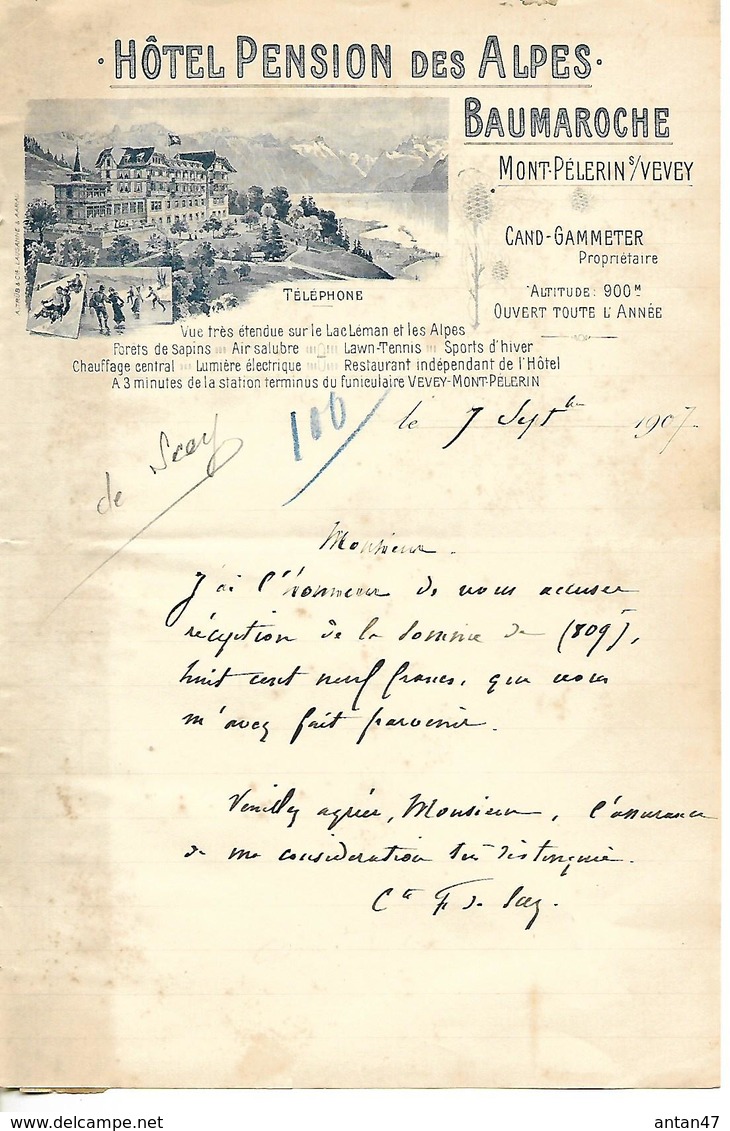 · HÔTEL PENSION DES ALPES ·
BAUMAROCHE
MONT-PÉLERIN S/VEVEY
CAND-GAMMETER
Propriétaire
ALTITUDE: 900M
OUVERT TOUTE L'ANNÉE
A. TRÜB & CIE. LAUSANNE & AARAU
TÉLÉPHONE
Vue très étendue sur le Lac Léman et les Alpes
Forêts de Sapins Air salubre Lawn-Tennis Sports d'hiver
Chauffage central Lumière électrique Restaurant indépendant de l'Hôtel
A 3 minutes de la station terminus du funiculaire VEVEY-MONT-PÉLERIN
le 7 Septbre 1907
106
de Scey
Monsieur.
J'ai l'honneur de vous accuser
réception de la somme de (809f),
huit cent neuf francs, que vous
m'avez fait parvenir.
Veuillez agréer, Monsieur, l'assurance
de ma considération très distinguée.
Cte F de Scey.
antan47
delcampe.net